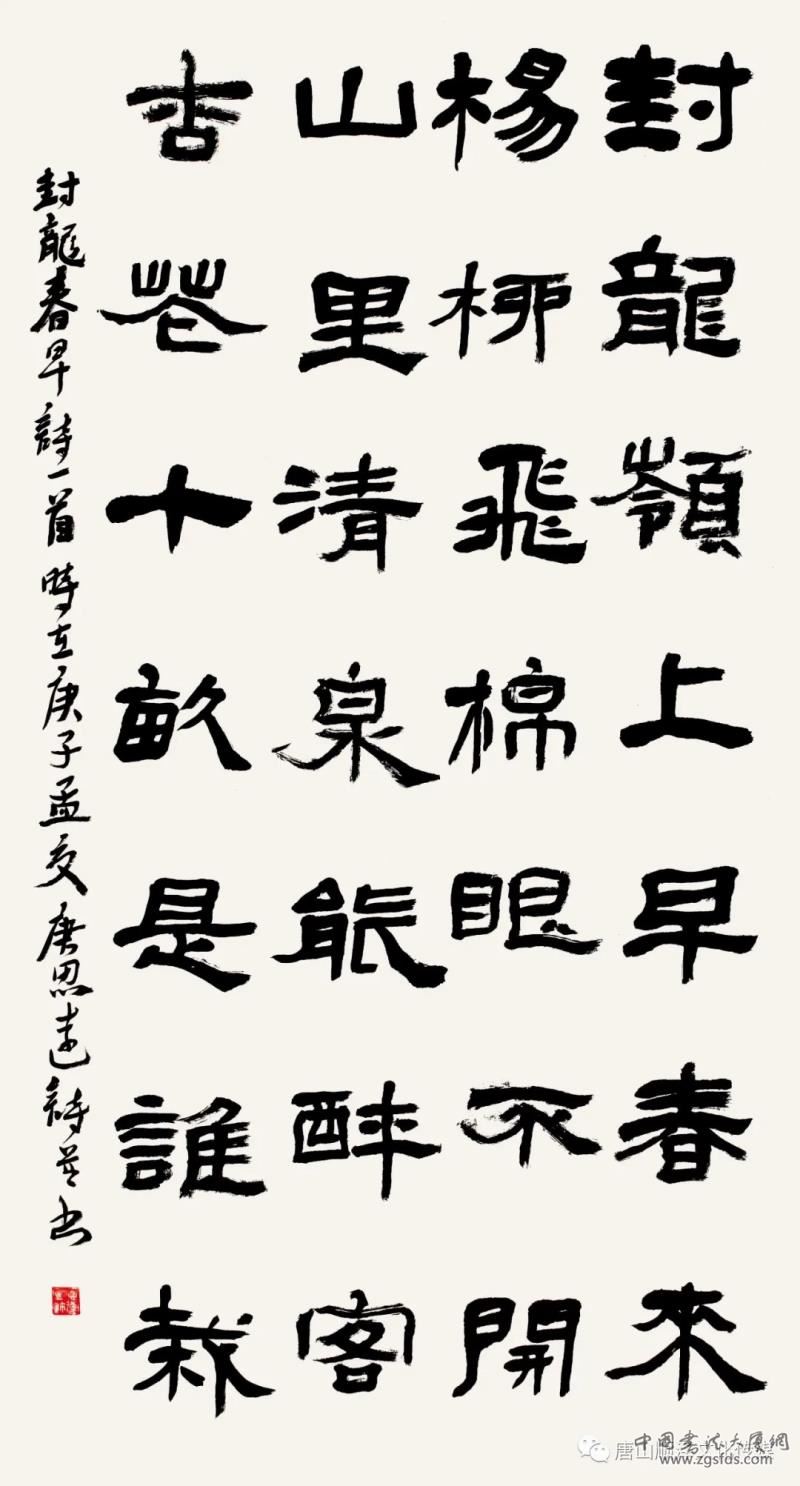 封龍嶺上早春來
楊柳飛棉眼不開
山里清泉能醉客
杏花十畝是誰栽
封龍春早詩一首時在庚子孟夏唐思遠詩并書
中国书法大厦網
www.zgsfds.com